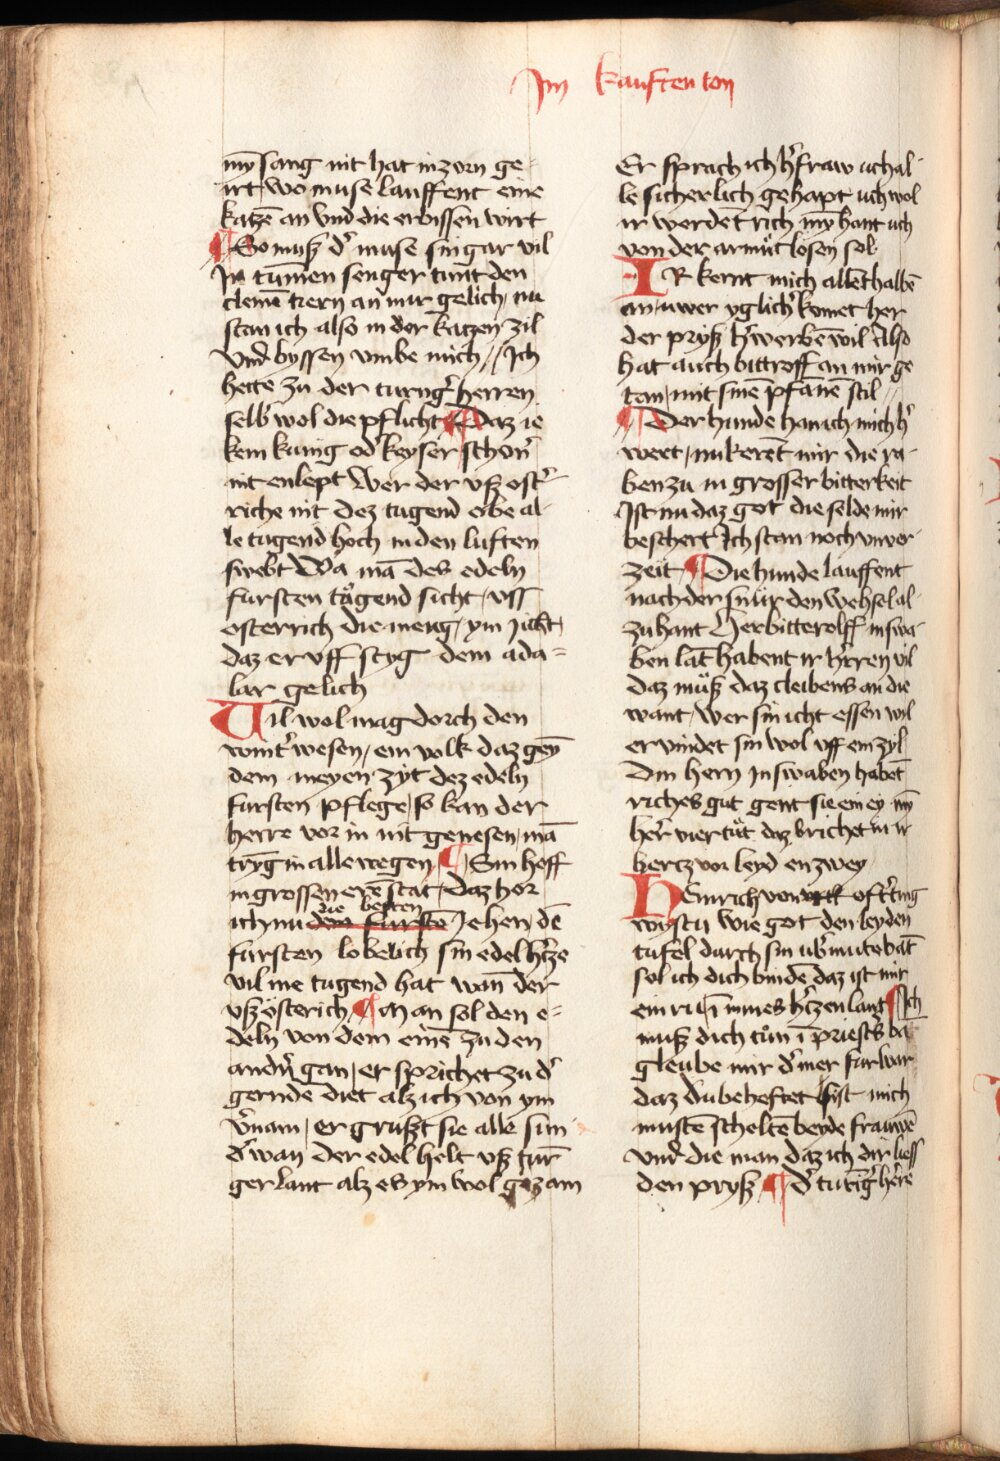 Im kauften ton
my̅ sang nit hat in zorn ge-
irt wo muse lauffent eine
katze̅ an vnd die erbissen wirt
¶ So muß dʼ muse sin gar vil
Ir tu̅men senger tunt den
cleine̅ tzern an mir gelich nu
stan ich also in der katzen zil
Vnd byssen vmbe mich // Ich
hette zu der turngʼ herren
selbʼ wol die pflicht ¶ Daz ie
kein kunig odʼ keyser schonʼ
nit enlept Wer der vß ostʼ-
riche nit dez tugend obe al-
le tugend hoch in den luften
swebt Wa ma̅ des edeln
fursten tugend sicht / vss
osterrich die meng / ym jicht
daz er vff styg dem ada-
lar gelich
Vil wol mag dorch den
wintʼ wesen / ein volk daz gey̅
dem meyen zyt dez edeln
fursten pflege / so kan der
herre vor in nit genesen / ma̅
tryg in alle wegen ¶ Sin hoff
in grossen ere̅ stat / Daz hor
ich nu dem furste̅ die besten Jehen / de̅
fursten lobelich sin edel hʼtze
vil me tugend hat wan̅ der
vß österich ¶ Man sol den e-
deln von dem eine̅ zu den
andrʼn gan / er sprichet zu dʼ
gernde diet alz ich von ym
vʼnam / er grußt sie alle sun
dʼ wan der edel helt vß tur̅
gerlant alz es ym wol gezam
Er sprach ich hʼ fraw uch al-
le sicherlich gehapt uch wol
ir werdet rich my̅ hant uch
von der armut losen sol
IR kernt mich alle̅thalbe̅
an / uwer yglichʼ komet her
der pryß hʼwerbe̅ wil Also
hat auch bittroff an mir ge
tan / mit sine̅ pfane̅ stil
¶ Der hunde han ich mich hʼ
wert / nu kere̅t mir die ra-
ben zu in grosser bitterkeit
Ist nu daz got die selde mir
beschert Ich stan noch vnver-
zeit ¶ Die hunde lauffent
nach der snür den wehsel al-
zu hant Her bitterolff in swa-
ben lat̅ habent ir hʼrren vil
daz muß daz cleibens an die
want / wer sin icht essen wil
er vindet sin wol vff ein zyl
Din hern In swaben habet̅
riches gut gent sie ein ey my̅
herʼ viertut daz brichet in ir
hertz vor leyd enzwey
HEinrich von oftʼting
wystu wie got den leyden
tufel durch sin ubʼmute bat̅
sol ich dich binde̅ daz ist mir
ein ru i̅ mines hʼtzen lang ¶ Ich
muß dich tun i̅ priestʼs ba̅
gleube mir dʼ mer fur war
daz du beheftet bist mich
muste̅ schelte̅ beyde frauwe̅
Vnd die man daz ich dir liess
den pryß ¶ dʼ turi̅gʼ hʼere